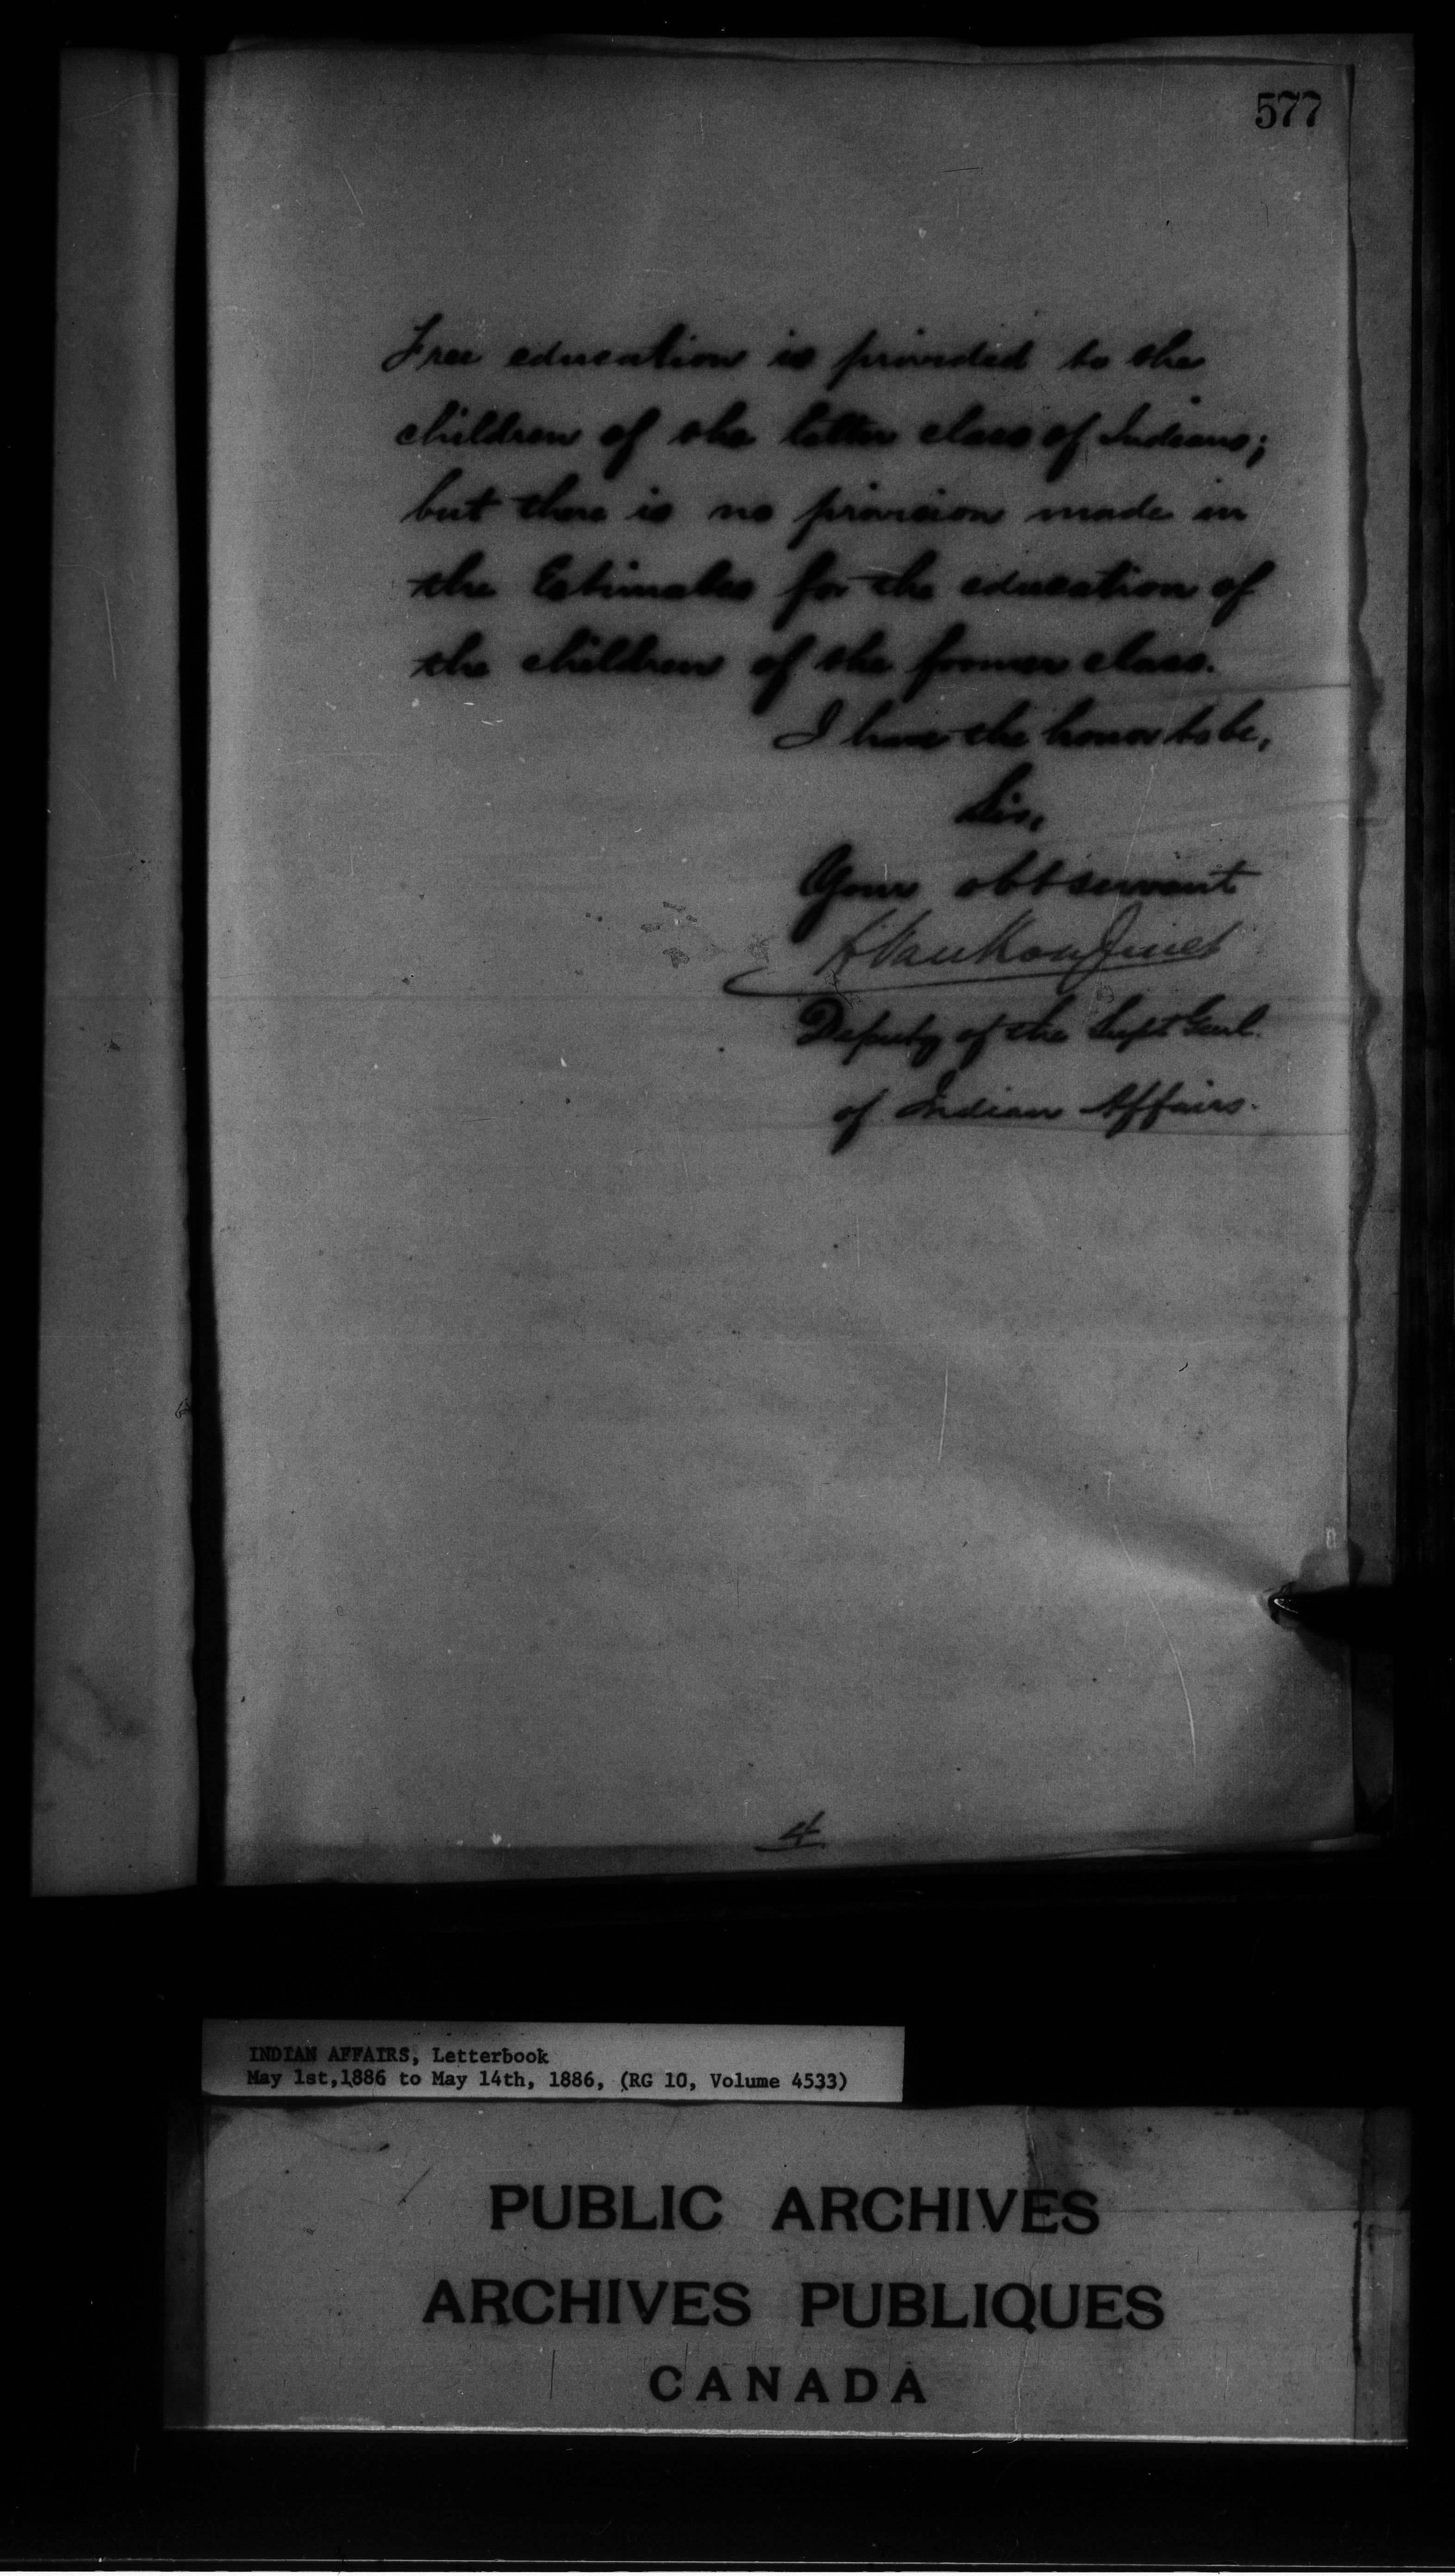 577
Free education is provided to the
children of the latter class of Indians;
but there is no provision made in
the Estimates for the education of
the children of the former class.
I have the honor to be,
Sir,
Your obt servant
L VanKoughnet
Deputy of the Supt Genl.
of Indian Affairs.
4
INDIAN AFFAIRS, Letterbook
May 1st,1886 to May 14th, 1886, (RG 10, Volume 4533)
PUBLIC ARCHIVES
ARCHIVES PUBLIQUES
CANADA